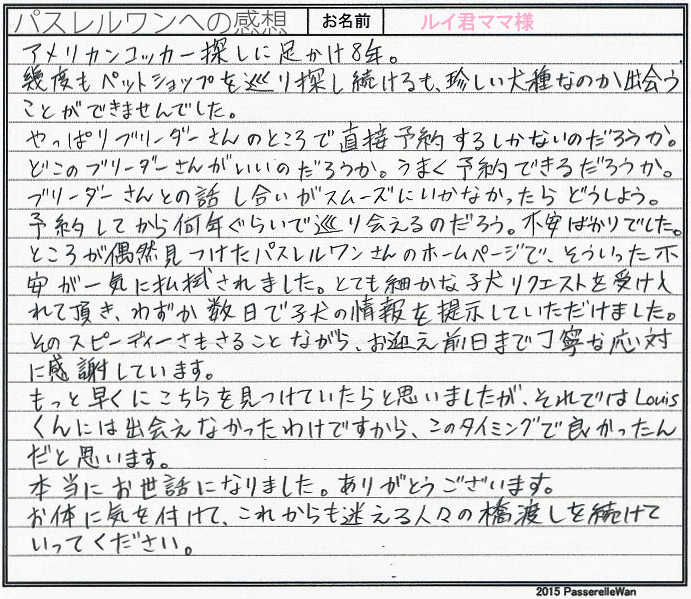 パスレルワンへの感想 お名前 ルイ君ママ様
アメリカンコッカー探しに足かけ8年。
幾度もペットショップを巡り探し続けるも、珍しい犬種なのか出会う
ことができませんでした。
やっぱりブリーダーさんのところで直接予約するしかないのだろうか。
どこのブリーダーさんがいいのだろうか。うまく予約できるだろうか。
ブリーダーさんとの話し合いがスムーズにいかなかったらどうしよう。
予約してから何年ぐらいで巡り会えるのだろう。不安ばかりでした。
ところが偶然見つけたパスレルワンさんのホームページで、そういった不
安が一気に払拭されました。とても細かな子犬リクエストを受け入
れて頂き、わずか数日で子犬の情報を提示していただけました。
そのスピーディーさもさることながら、お迎え前日まで丁寧な応対
に感謝しています。
もっと早くにこちらを見つけていたらと思いましたが、それではLouis
くんには出会えなかったわけですから、このタイミングで良かったん
だと思います。
本当にお世話になりました。ありがとうございます。
お体に気を付けて、これからも迷える人々の橋渡しを続けて
いってください。
2015 PasserelleWan